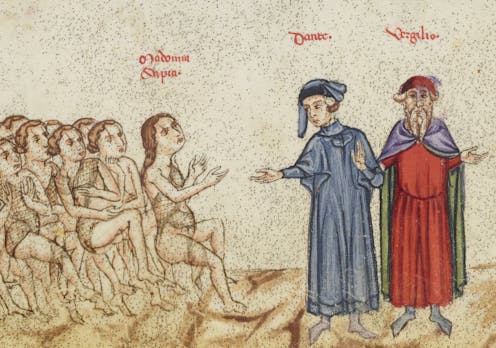 Madonna
Sapia.
Dante.
Vergilio.